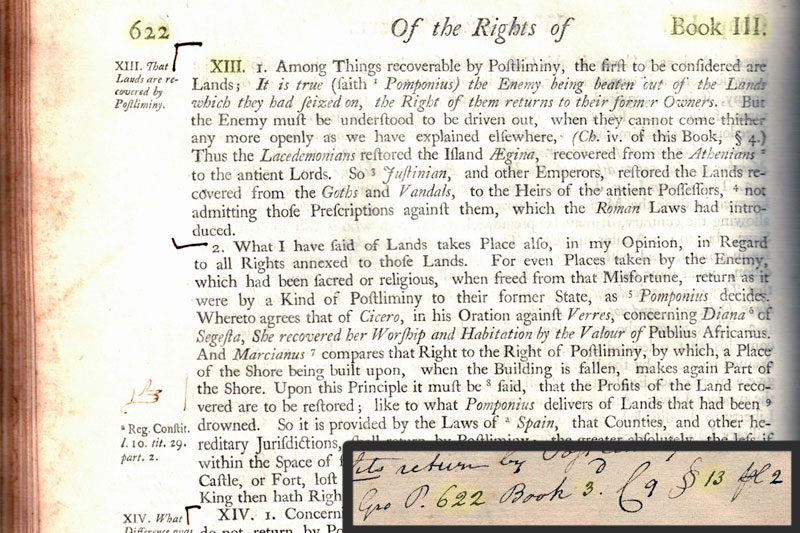 622 Of the Rights of Book III.
XIII. That
Lands are re-
covered by
Poſtliminy.
XIII. 1. Among Things recoverable by Poſtliminy, the firſt to be conſidered are
Lands; It is true (ſaith ¹ Pomponius) the Enemy being beaten out of the Lands
which they had ſeized on, the Right of them returns to their former Owners. But
the Enemy muſt be underſtood to be driven out, when they cannot come thither
any more openly as we have explained elſewhere, (Ch. iv. of this Book, § 4.)
Thus the Lacedemonians reſtored the Iſland Ægina, recovered from the Athenians ²
to the antient Lords. So ³ Juſtinian, and other Emperors, reſtored the Lands re-
covered from the Goths and Vandals, to the Heirs of the antient Poſſeſſors, ⁴ not
admitting thoſe Preſcriptions againſt them, which the Roman Laws had intro-
duced.
2. What I have ſaid of Lands takes Place alſo, in my Opinion, in Regard
to all Rights annexed to thoſe Lands. For even Places taken by the Enemy,
which had been ſacred or religious, when freed from that Misfortune, return as it
were by a Kind of Poſtliminy to their former State, as ⁵ Pomponius decides.
Whereto agrees that of Cicero, in his Oration againſt Verres, concerning Diana ⁶ of
Segeſta, She recovered her Worſhip and Habitation by the Valour of Publius Africanus.
And Marcianus ⁷ compares that Right to the Right of Poſtliminy, by which, a Place
of the Shore being built upon, when the Building is fallen, makes again Part of
the Shore. Upon this Principle it muſt be ⁸ ſaid, that the Profits of the Land reco-
vered are to be reſtored; like to what Pomponius delivers of Lands that had been ⁹
drowned. So it is provided by the Laws of ᵃ Spain, that Counties, and other he-
reditary Juriſdictions, ſhall return by Poſtliminy, the greater abſolutely, the leſs if
within the Space of
Caſtle, or Fort, loſt
King then hath Righ
ᵃ Reg. Conſtit.
l. 10. tit. 29.
part. 2.
XIV. What
Difference was
XIV. 1. Concerni
do not return by Po
its return by
Gro P. 622 Book 3. C 9 § 13 2